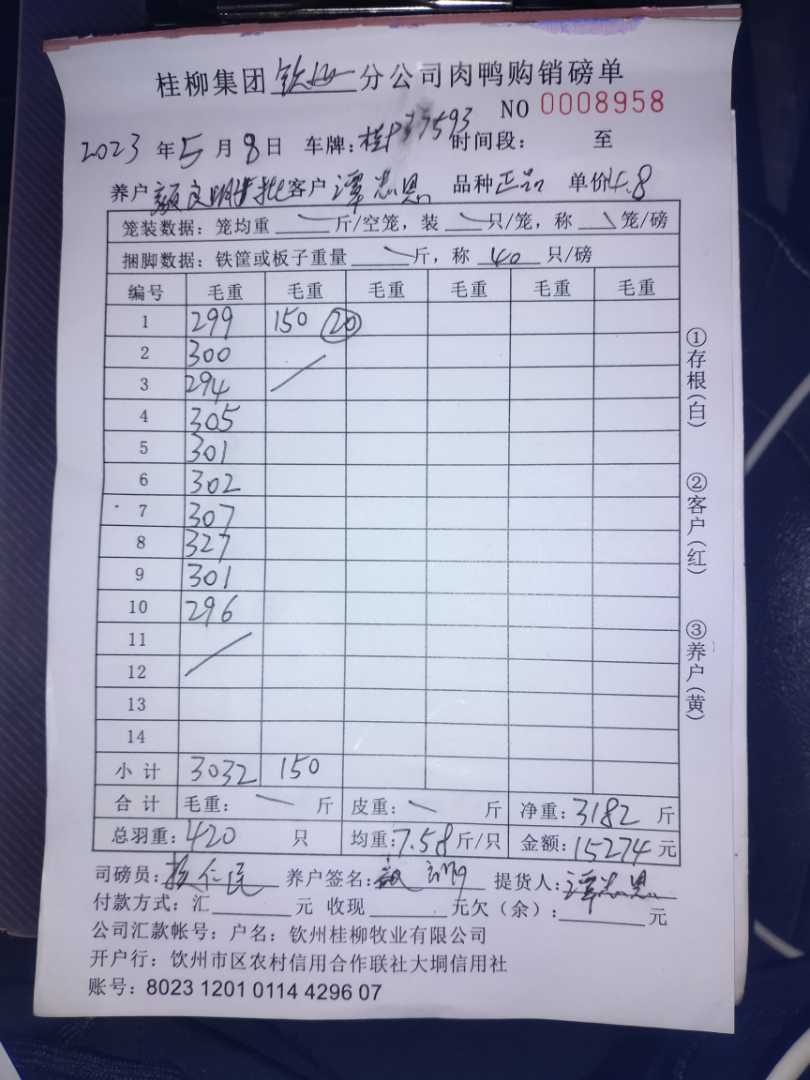 桂柳集团钦州分公司肉鸭购销磅单
NO 0008958
2023年5月8日 车牌:桂P37593 时间段: 至
养户 文明 批 客户 谭忠恩 品种 正品 单价 4.8
笼装数据:笼均重 斤/空笼,装 只/笼,称 笼/磅
捆脚数据:铁筐或板子重量 斤,称 40 只/磅
编号 毛重 毛重 毛重 毛重 毛重 毛重
1 299 150 (20)
2 300
3 294
4 305
5 301
6 302
7 307
8 327
9 301
10 296
11
12
13
14
小计 3032 150
合计 毛重: 斤 皮重: 斤 净重:3182 斤
总羽重:420 只 均重:7.58 斤/只 金额:15274 元
司磅员: 仁民 养户签名: 提货人:谭忠恩
付款方式:汇 元 收现 元欠(余): 元
公司汇款帐号:户名:钦州桂柳牧业有限公司
开户行:钦州市区农村信用合作联社大垌信用社
账号:8023 1201 0114 4296 07
①存根(白)
②客户(红)
③养户(黄)